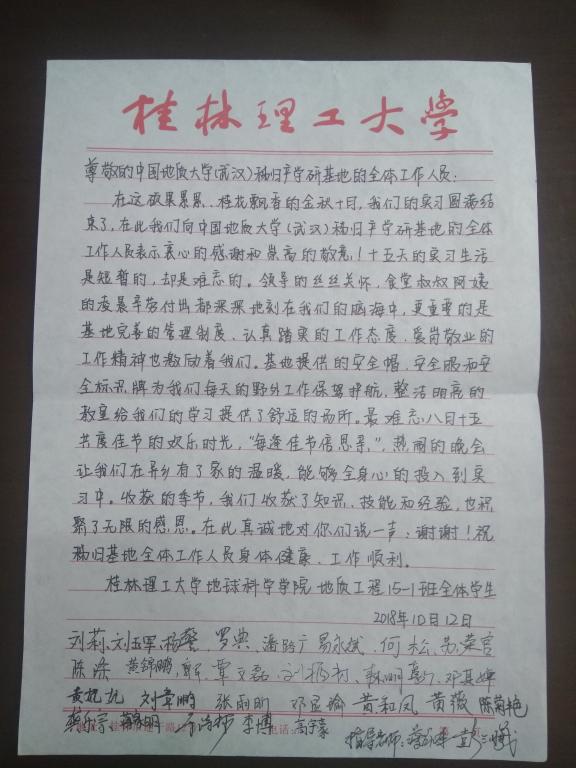 桂林理工大学
尊敬的中国地质大学(武汉)秭归产学研基地的全体工作人员:
在这硕果累累、桂花飘香的金秋十月,我们的实习圆满结
束了,在此我们向中国地质大学(武汉)秭归产学研基地的全体
工作人员表示衷心的感谢和崇高的敬意!十五天的实习生活
是短暂的,却是难忘的。领导的丝丝关怀,食堂叔叔阿姨
的凌晨辛劳付出都深深地刻在我们的脑海中,更重要的是
基地完善的管理制度、认真踏实的工作态度、爱岗敬业的
工作精神也激励着我们。基地提供的安全帽、安全服和安
全标识牌为我们每天的野外工作保驾护航,整洁明亮的
教室给我们的学习提供了舒适的场所。最难忘八月十五
共度佳节的欢乐时光,“每逢佳节倍思亲”,热闹的晚会
让我们在异乡有了家的温暖,能够全身心的投入到实
习中。收获的季节,我们收获了知识、技能和经验,也积
聚了无限的感恩。在此真诚地对你们说一声:谢谢!祝
秭归基地全体工作人员身体健康、工作顺利。
桂林理工大学地球科学学院 地质工程15-1班全体学生
2018年10月12日
刘莉、刘玉军、罗典、易永斌、何松、
黄锦鹏、覃文磊、邓其婵
刘章鹏 张雨昕 黄和凤 黄薇 陈菊艳
李博 高宇豪 电话: 指导老师: